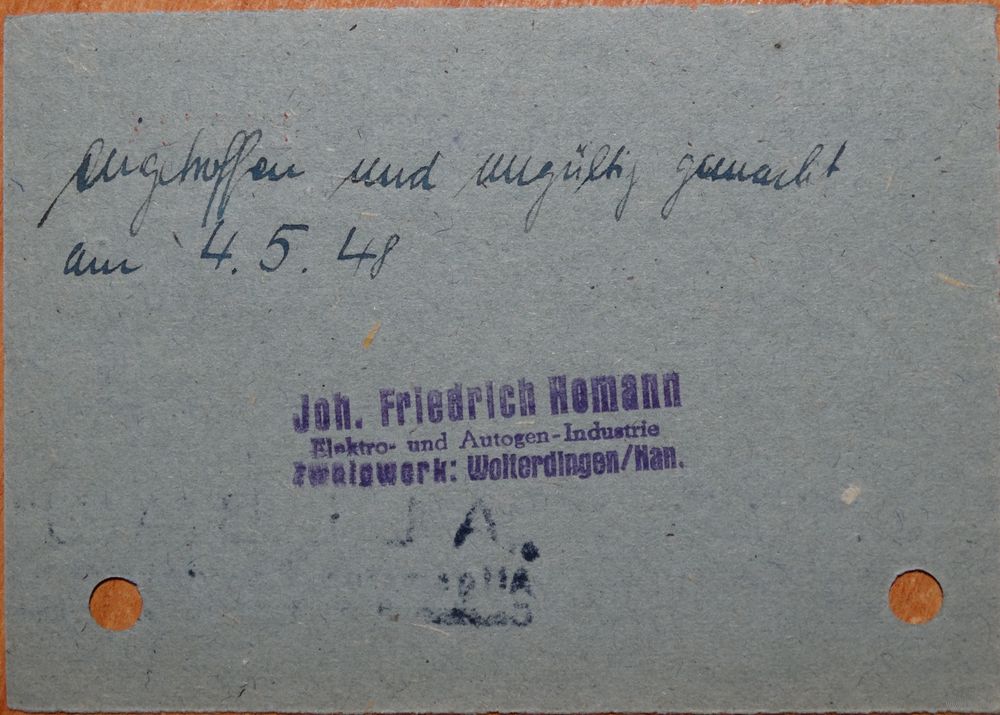 angetroffen und ungültig gemacht
am 4. 5. 48
Joh. Friedrich Homann
Elektro- und Autogen-Industrie
Zweigwerk: Wolterdingen/Han.